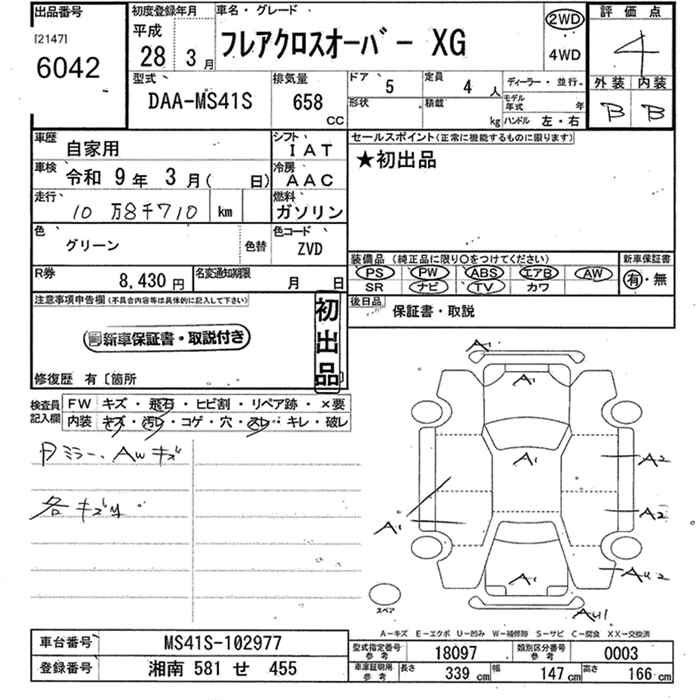 出品番号
[2147]
6042
初度登録年月
平成
28年 3月
車名・グレード
フレアクロスオーバー XG
2WD
4WD
評価点
4
外装 内装
B B
型式
DAA-MS41S
排気量
658 CC
ドア 5
形状
定員 4 人
積載 kg
ディーラー・並行
モデル年式 年
ハンドル 左・右
車歴 自家用
シフト IAT
車検 令和 9年 3月( 日)
冷房 AAC
走行 10万8千710 km
燃料 ガソリン
色 グリーン 色替
色コード ZVD
R券 8,430円
名変通知期限 月 日
セールスポイント(正常に機能するものに限ります)
★初出品
装備品 (純正品に限り○をつけてください)
PS PW ABS エアB AW
SR ナビ TV カワ
新車保証書
有・無
後日品 保証書・取説
注意事項申告欄(不具合内容等は具体的に記入して下さい)
新車保証書・取説付き
初出品
修復歴 有〔箇所 〕
検査員記入欄
FW キズ・飛石・ヒビ割・リペア跡・×要
内装 キズ・汚レ・コゲ・穴・スレ・キレ・破レ
ミラー、AWキズ
各キズ
A1
A1
A1
A2
A2
A1
A1
AU2
AU1
スペア
A-キズ E-エクボ U-凹み W-補修跡 S-サビ C-腐食 XX-交換済
車台番号 MS41S-102977
登録番号 湘南 581 せ 455
型式指定番号 参考 18097
類別区分番号 参考 0003
車庫証明用 参考
長さ 339 cm 幅 147 cm 高さ 166 cm